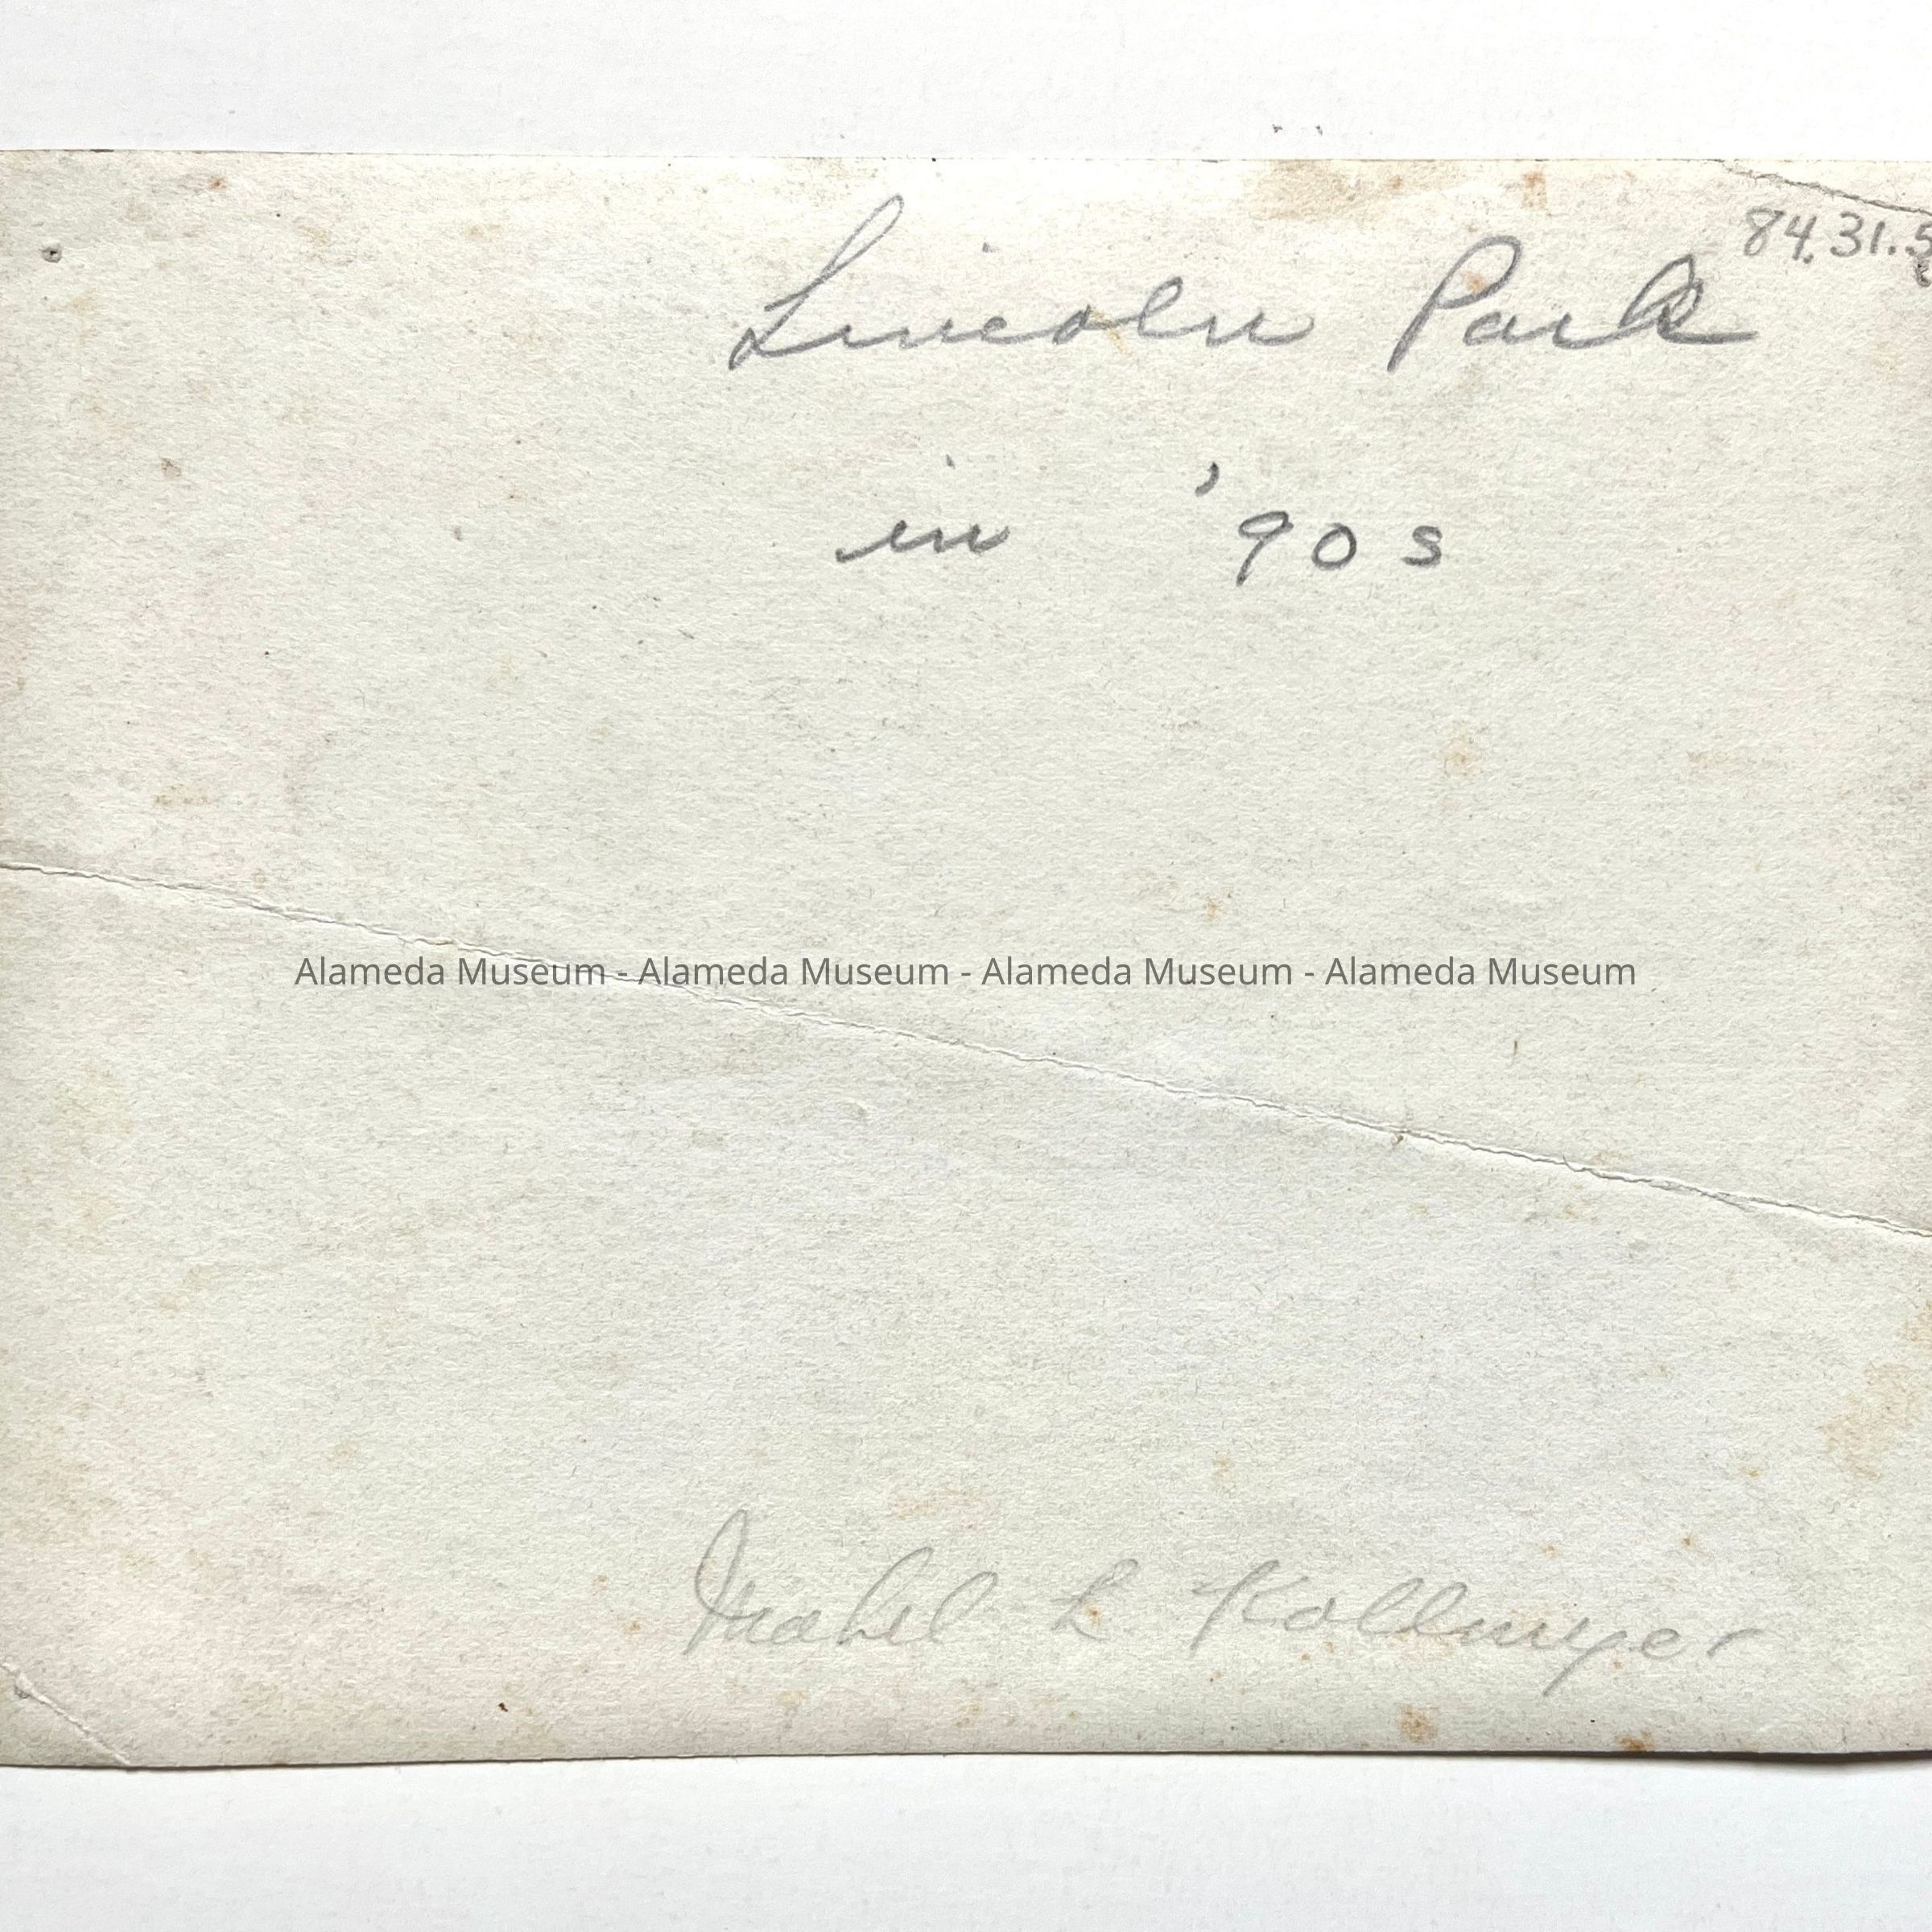 84.31.5
Lincoln Park
in '90s
Alameda Museum - Alameda Museum - Alameda Museum - Alameda Museum
Mabel L. Kollmyer